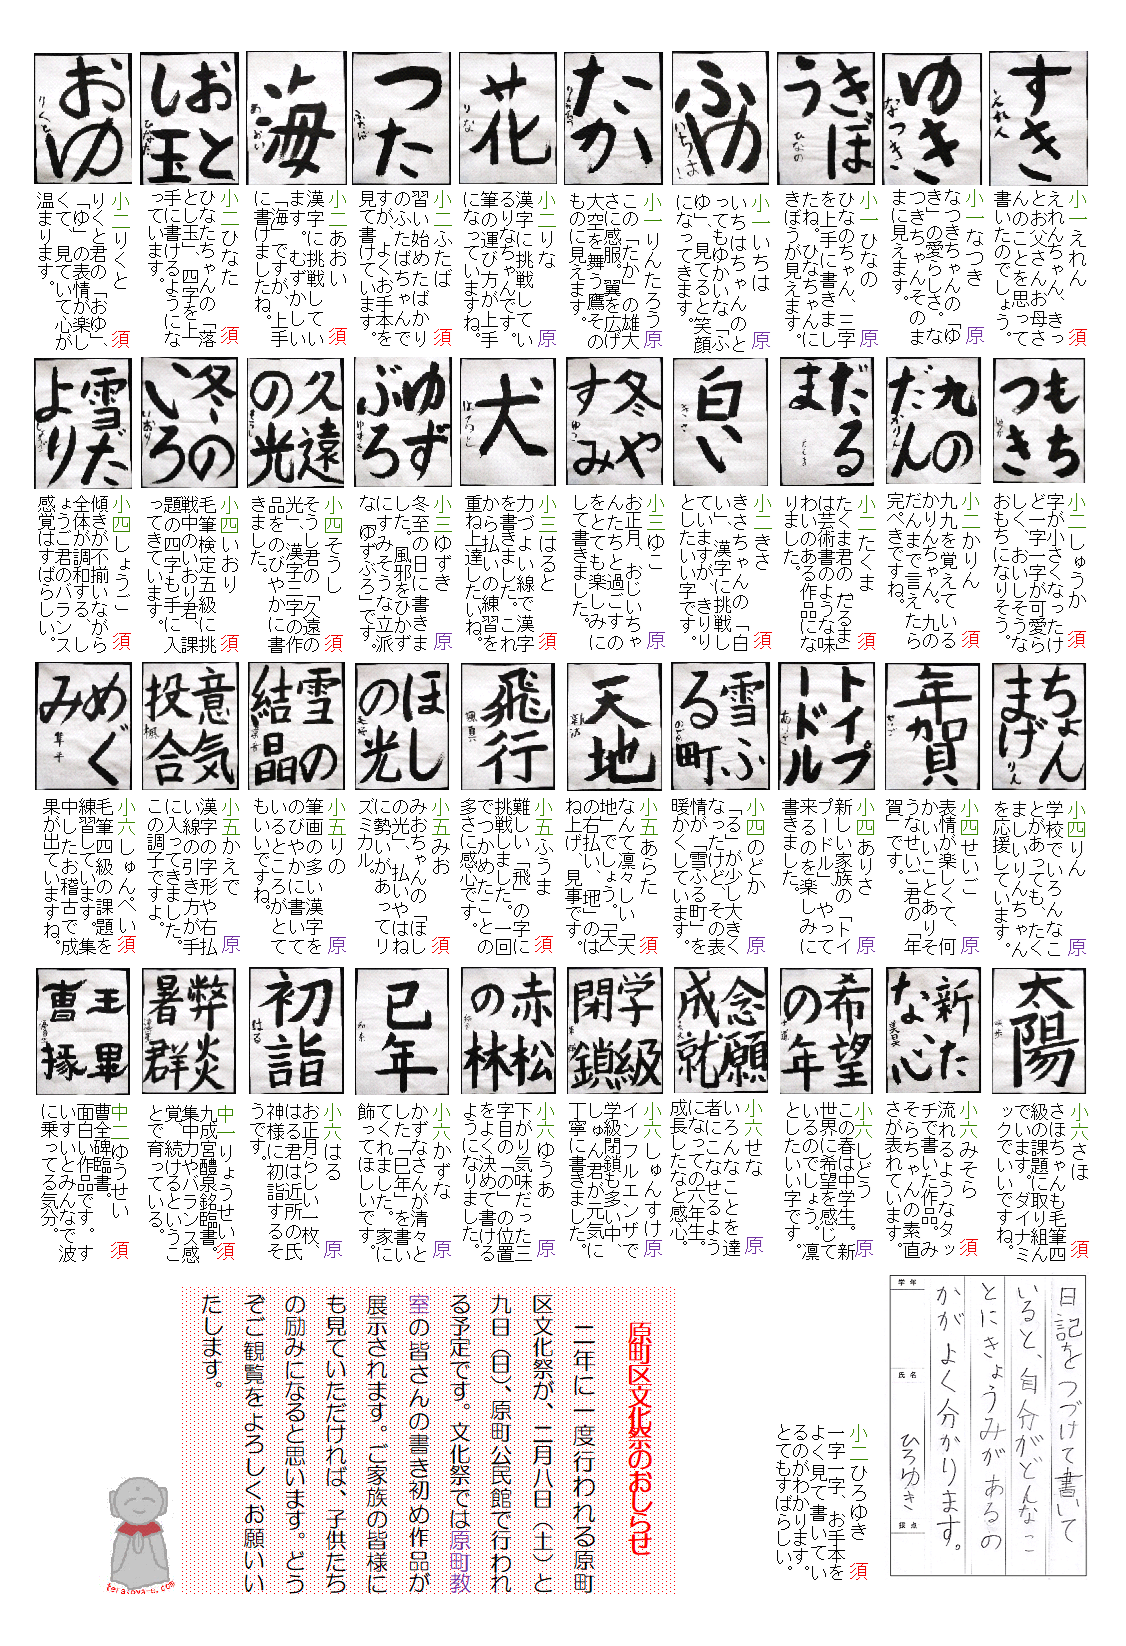 すき
えれん
小一 えれん 須
えれんちゃん、きっ
とお父さんお母さ
んのことを思って
書いたのでしょう。
ゆき
なつき
小一 なつき 須
なつきちゃんの「ゆ
き」の愛らしさ。な
つきちゃんそのま
まに見えます。
きぼ
う
ひなの
小一 ひなの 原
ひなのちゃん、三字
を上手に書きまし
たね。ひなちゃんに
きぼうが見えます。
ふゆ
いちは
小一 いちは 原
いちはちゃんのと
ってもゆかいな「ふ
ゆ」、見てると笑顔
になってきます。
たか
小一 りんたろう 原
この「たか」の雄大
さに感服。翼を広げ
大空を舞う鷹その
ものに見えます。
花
りな
小二 りな 原
漢字に挑戦してい
るりなちゃんです。
筆の運び方が上手
になっていますね。
つた
ふたば
小二 ふたば 須
習い始めたばかり
のふたばちゃんで
すが、よくお手本を
見て書けています。
海
あおい
小二 あおい 須
漢字に挑戦してい
ます。むずかしい
「海」ですが、上手
に書けましたね。
おと
し玉
ひなた
小二 ひなた 須
ひなたちゃんの「落
とし玉」四字を上
手に書けるようにな
っています。
おゆ
りくと
小二 りくと 須
りくと君の「おゆ」、
「ゆ」の表情が楽し
くて、見ていて心が
温まります。
もち
つき
小二 しゅうか 須
字が小さくなったけ
ど一字一字が可愛ら
しく、おいしそうな
おもちになりそう。
九の
だん
かりん
小二 かりん 須
九九を覚えている
かりんちゃん。九の
だんまで言えたら
完ぺきですね。
だる
ま
たくま
小二 たくま 須
たくま君の「だるま」
は芸術書のような味
わいのある作品にな
りました。
白い
きさ
小二 きさ 須
きさちゃんの「白
い」、漢字に挑戦し
ていますが、きりり
としたいい字です。
冬や
すみ
ゆこ
小三 ゆこ 原
お正月、おじいちゃ
んたちと過ごすの
をとても楽しみに
して書きました。
犬
はると
小三 はると 須
力づよい線で漢字
を書きました。これ
から払いの練習を
重ね上達したいね。
ゆず
ぶろ
ゆずき
小三 ゆずき 原
冬至の日に書きま
した。風邪をひかず
にすみそうな立派
な「ゆずぶろ」です。
久遠
の光
そうし
小四 そうし 須
そうし君の「久遠の
光」、漢字三字の作
品をのびやかに書
きました。
冬の
いろ
いおり
小四 いおり 須
毛筆検定五級に挑
戦中のいおり君、課
題の四字も手に入
ってきています。
雪だ
より
小四 しょうご 須
傾きが不揃いながら
全体が調和する、し
ょうご君のバランス
感覚はすばらしい。
ちょん
まげ
りん
小四 りん 原
学校でいろんなこ
とがあっても、たく
ましいりんちゃん
を応援しています。
年賀
せいご
小四 せいご 原
表情が楽しくて、何
かいいことありそ
うなせいご君の「年
賀」。
トイプ
ードル
ありさ
小四 ありさ 原
新しい家族の「トイ
プードル」、やって
来るのを楽しみに
書きました。
雪ふ
る町
のどか
小四 のどか 原
「る」が少し大きく
なったけど、その表
情が「雪ふる町」を
暖かくしています。
天地
新汰
小五 あらた 須
なんて凛々しい「天
地」でしょう。「天」
の右払い、「地」のは
ね上げ、見事です。
飛行
風真
小五 ふうま 須
難しい「飛」の字に
挑戦しました。一回
でつかめたことの
多さに感心です。
ほし
の光
小五 みお 須
みおちゃんの「ほし
の光」、払いやはね
に勢いがあってリ
ズミカル。
雪の
結晶
小五 りの 原
筆画の多い漢字を
のびやかに書いて
いるところがとて
もいいですね。
意気
投合
楓
小五 かえで 原
漢字の字形や右払
い線の引き方が手
に入ってきました。
この調子ですよ。
めぐ
み
隼平
小六 しゅんぺい 須
毛筆四級の課題を
練習しています。集
中したお稽古で、成
果が出ていますね。
太陽
小六 さほ 須
さほちゃんも毛筆四
級の課題に取り組ん
でいます。ダイナミ
ックでいいですね。
新た
な心
美昊
小六 みそら 須
流れるようなタッ
チで書いた作品。み
そらちゃんの素直
さが表れています。
希望
の年
小六 しどう 原
この春は中学生。新
世界に希望を感じて
いるのでしょう。凛
としたいい字です。
念願
成就
小六 せな 原
いろんなことを達
者にこなせるよう
になっての六年生。
成長したなと感心。
学級
閉鎖
小六 しゅんすけ 原
インフルエンザで
学級閉鎖も多い中
しゅん君が元気に
丁寧に書きました。
赤松
の林
小六 ゆうあ 原
下がり気味だった三
字目の「の」の位置
をよく決めて書ける
ようになりました。
已年
小六 かずな 原
かずなさんが清々と
した「巳年」を書い
てくれました。家に
飾ってほしいです。
初詣
はる
小六 はる 原
お正月らしい一枚、
はる君は近所の氏
神様に初詣するそ
うです。
弊炎
暑群
中一 りょうせい 須
九成宮醴泉銘臨書。
集中力やバランス感
覚、続けるというこ
とで育っている。
王畢
曹掾
中二 ゆうせい 須
曹全碑臨書。
面白い作品です。す
いすいとみんなで波
に乗ってる気分。
日記をつづけて書いて
いると、自分がどんなこ
とにきょうみがあるの
かが よく分かります。
学年
氏名
ひろゆき
採点
小二 ひろゆき 須
一字一字、お手本を
よく見て書いてい
るのがわかります。
とてもすばらしい。
原町区文化祭のおしらせ
二年に一度行われる原町
区文化祭が、二月八日（土）と
九日（日）、原町公民館で行われ
る予定です。文化祭では原町教
室の皆さんの書き初め作品が
展示されます。ご家族の皆様に
も見ていただければ、子供たち
の励みになると思います。どう
ぞご観覧をよろしくお願いい
たします。
terakoya-u.com